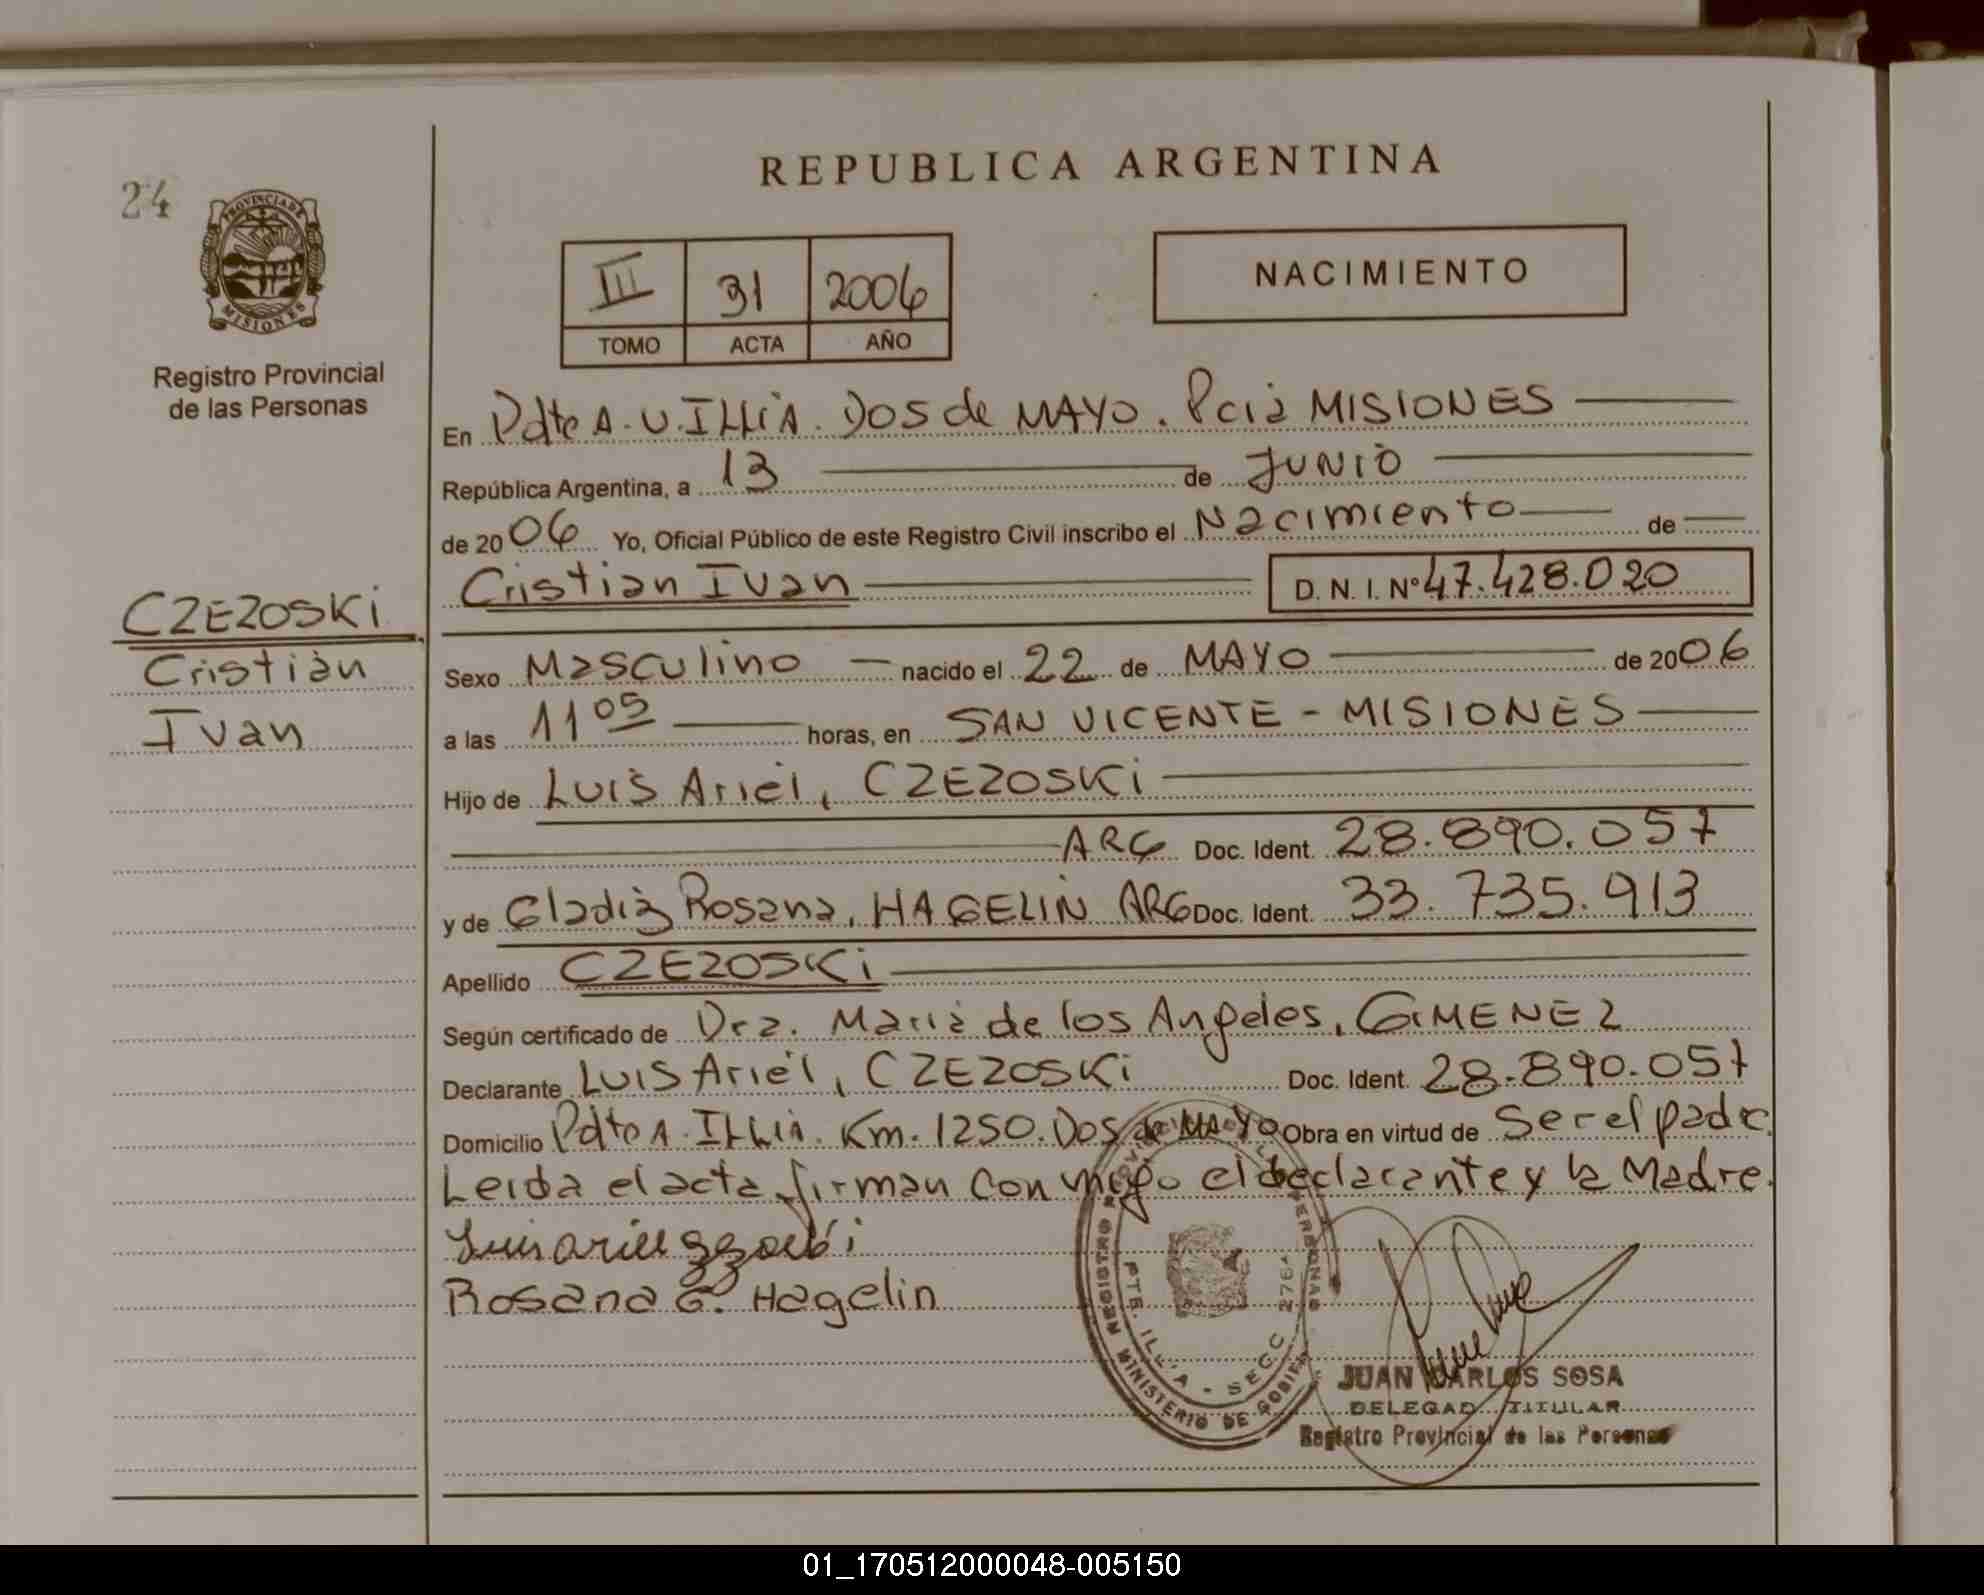 24
PROVINCIA DE
MISIONES
Registro Provincial
de las Personas
REPUBLICA ARGENTINA
III 31 2006
TOMO ACTA AÑO
NACIMIENTO
En Pdte A. U. ILLIA. DOS de MAYO. Pcia MISIONES
República Argentina, a 13 de JUNIO
de 2006 Yo, Oficial Público de este Registro Civil inscribo el Nacimiento de
Cristian Ivan D. N. I. Nº 47.428.020
CZEZOSKi
Cristian
Ivan
Sexo Masculino nacido el 22 de MAYO de 2006
a las 11 05 horas, en SAN VICENTE - MISIONES
Hijo de Luis Ariel, CZEZOSKi
ARG Doc. Ident. 28.890.057
y de Gladis Rosana, HAGELIN ARG Doc. Ident. 33.735.913
Apellido CZEZOSKi
Según certificado de Dra. Maria de los Angeles, GIMENEZ
Declarante Luis Ariel, CZEZOSKi Doc. Ident. 28.890.057
Domicilio Pdte A. ILLIA. Km. 1250. DOS de MAYO Obra en virtud de ser el padre.
Leida el acta firman con migo el declarante y la Madre.
Luis ariel
Rosana G. Hagelin
REGISTRO PERSONAS
PTE. ILLIA - SECC 2764
MINISTERIO DE GOBIERNO
JUAN CARLOS SOSA
DELEGADO TITULAR
Registro Provincial de las Personas
01_170512000048-005150